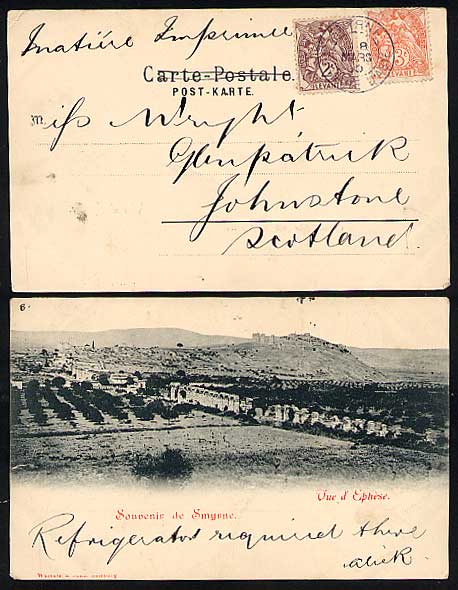 Matiére Imprimée
Carte-Postale.
POST-KARTE.
Miss Wright
Glenpatrick
Johnstone
Scotland.
2
LEVANT
3
LEVANT
6
Vue d'Ephèse.
Souvenir de Smyrne.
Refrigerator required there